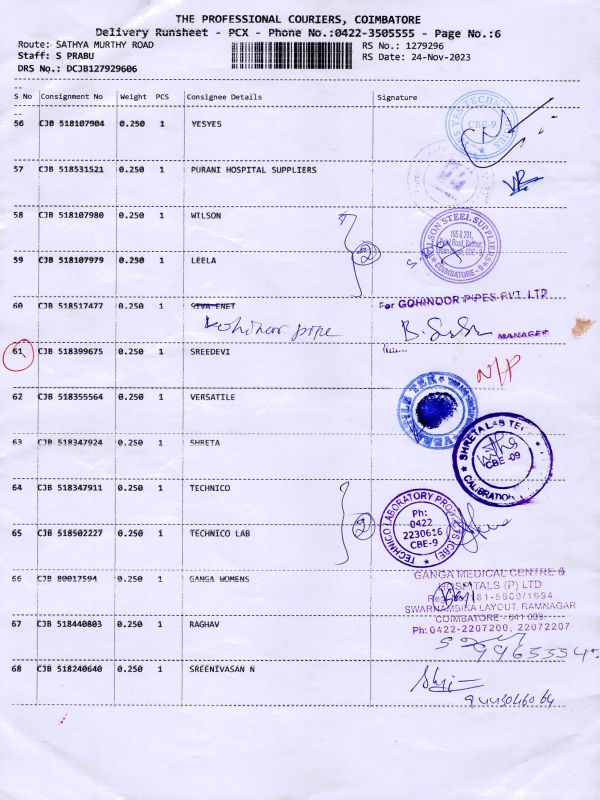 THE PROFESSIONAL COURIERS, COIMBATORE
Delivery Runsheet - PCX - Phone No.:0422-3505555 - Page No.:6
Route: SATHYA MURTHY ROAD RS No.: 1279296
Staff: S PRABU RS Date: 24-Nov-2023
DRS No.: DCJB127929606
S No Consignment No Weight PCS Consignee Details Signature
56 CJB 518107904 0.250 1 YESYES
CBE-9
57 CJB 518531521 0.250 1 PURANI HOSPITAL SUPPLIERS
58 CJB 518107980 0.250 1 WILSON
WILSON STEEL SUPPLIERS
COIMBATORE - 9
2
59 CJB 518107979 0.250 1 LEELA
60 CJB 518517477 0.250 1 SIVA ENET
For GOHINOOR PIPES PVT. LTD
Kohinoor pipe
MANAGER
61 CJB 518399675 0.250 1 SREEDEVI
N/P
62 CJB 518355564 0.250 1 VERSATILE
63 CJB 518347924 0.250 1 SHRETA
SHRETA LAB TE
CBE -09
CALIBRATION
64 CJB 518347911 0.250 1 TECHNICO
TECHNICO LABORATORY PRODUCTS (CBE)
Ph:
0422
2230616
CBE-9
2
65 CJB 518502227 0.250 1 TECHNICO LAB
66 CJB 80017594 0.250 1 GANGA WOMENS
GANGA MEDICAL CENTRE &
HOSPITALS (P) LTD
SWARNAMBIKA LAYOUT, RAMNAGAR
COIMBATORE - 641 009
Ph: 0422-2207200, 22072207
67 CJB 518440803 0.250 1 RAGHAV
68 CJB 518240640 0.250 1 SREENIVASAN N